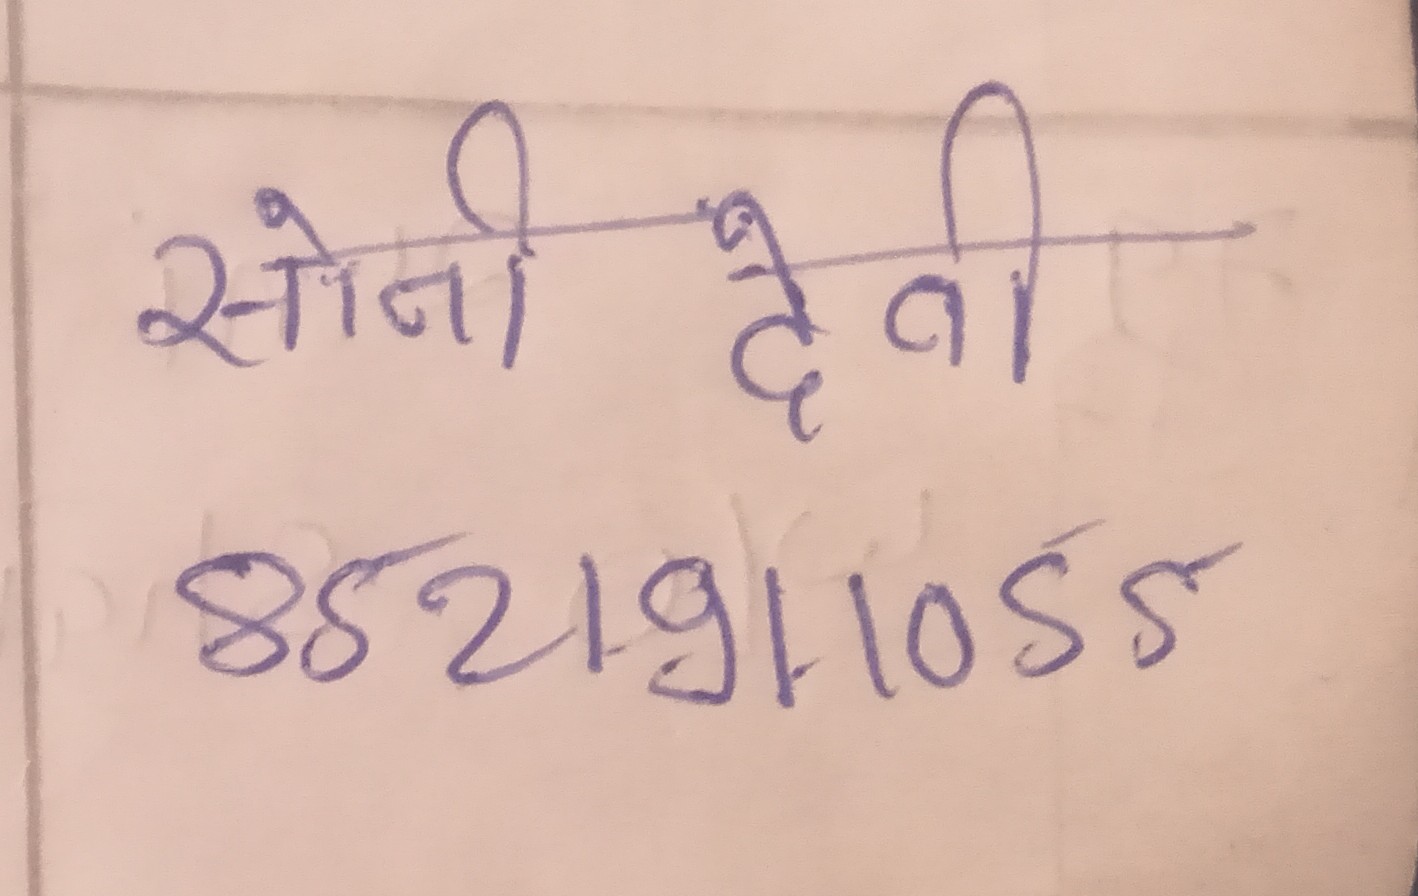 सोनी देवी
8521911055